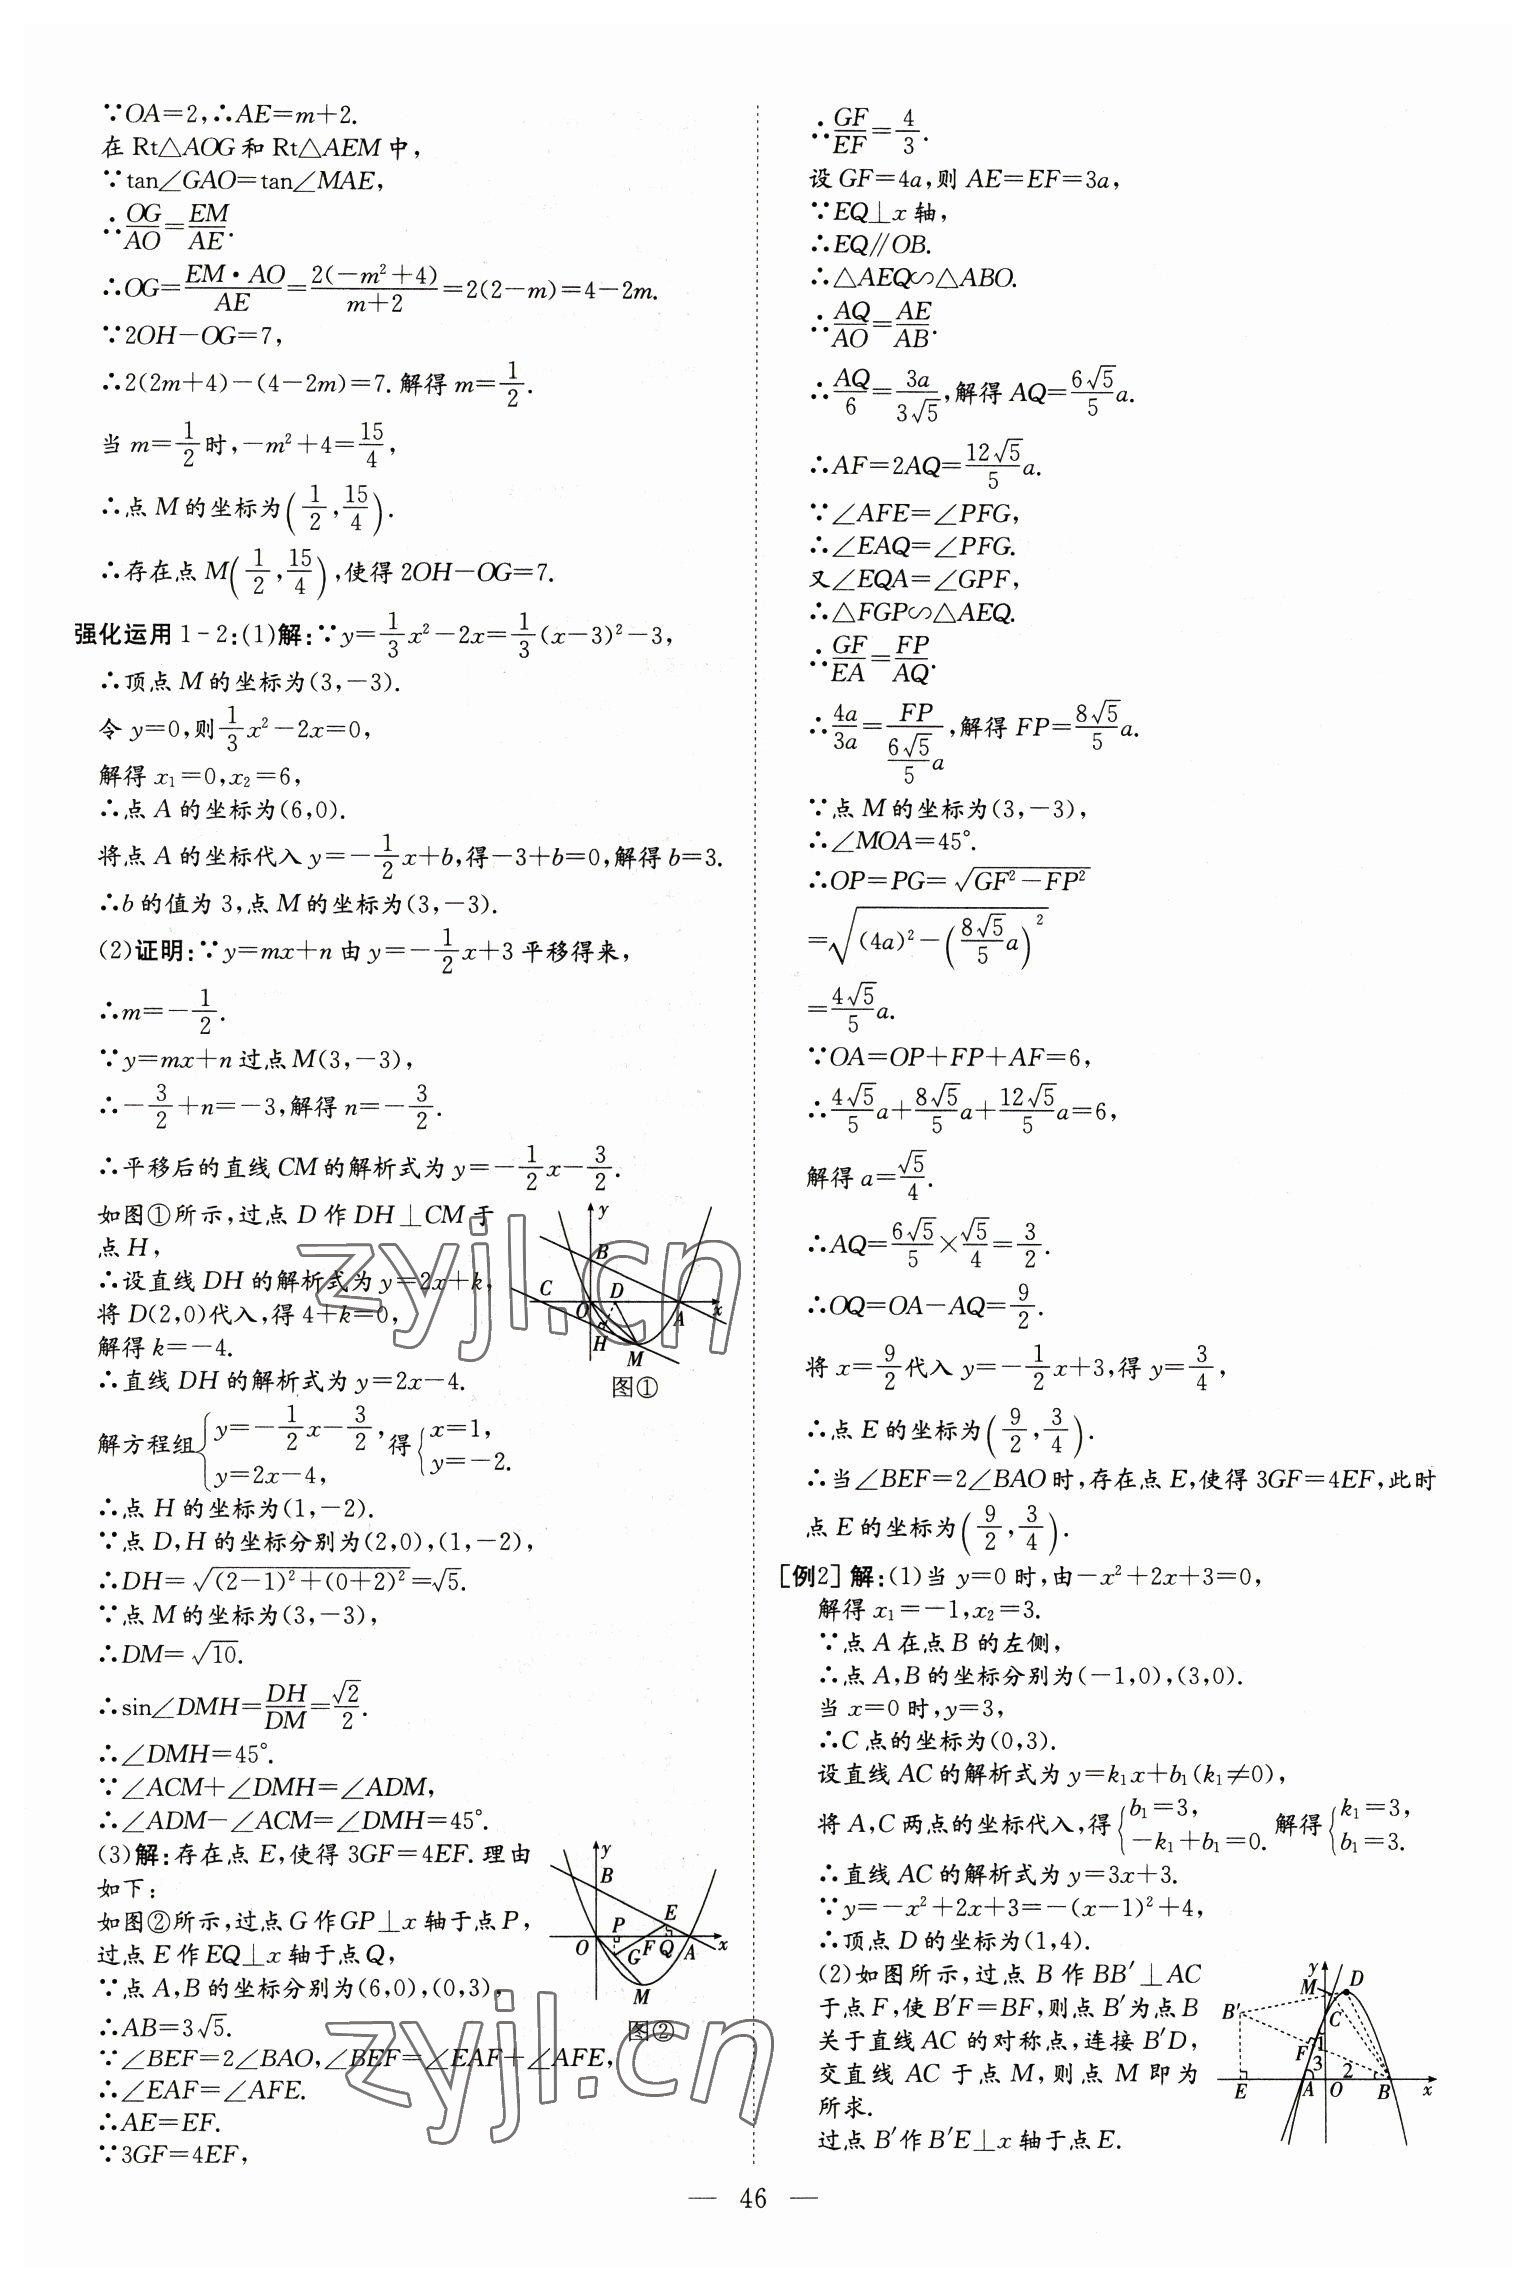 ∵OA=2,∴AE=m+2.
在 Rt△AOG 和 Rt△AEM 中,
∵tan∠GAO=tan∠MAE,
∴OG/AO=EM/AE.
∴OG=(EM·AO)/AE=2(-m²+4)/(m+2)=2(2-m)=4-2m.
∵2OH-OG=7,
∴2(2m+4)-(4-2m)=7. 解得 m=1/2.
当 m=1/2时,-m²+4=15/4,
∴点 M 的坐标为(1/2,15/4).
∴存在点 M(1/2,15/4),使得 2OH-OG=7.
强化运用 1-2:(1)解:∵y=1/3x²-2x=1/3(x-3)²-3,
∴顶点 M 的坐标为(3,-3).
令 y=0,则1/3x²-2x=0,
解得 x₁=0,x₂=6,
∴点 A 的坐标为(6,0).
将点 A 的坐标代入 y=-1/2x+b,得-3+b=0,解得 b=3.
∴b 的值为 3,点 M 的坐标为(3,-3).
(2)证明:∵y=mx+n 由 y=-1/2x+3 平移得来,
∴m=-1/2.
∵y=mx+n 过点 M(3,-3),
∴-3/2+n=-3,解得 n=-3/2.
∴平移后的直线 CM 的解析式为 y=-1/2x-3/2.
如图①所示,过点 D 作 DH⊥CM 于
点 H,
∴设直线 DH 的解析式为 y=2x+k,
将 D(2,0)代入,得 4+k=0,
解得 k=-4.
∴直线 DH 的解析式为 y=2x-4.
解方程组{y=-1/2x-3/2, y=2x-4, 得{x=1, y=-2.
∴点 H 的坐标为(1,-2).
∵点 D,H 的坐标分别为(2,0),(1,-2),
∴DH=√((2-1)²+(0+2)²)=√5.
∵点 M 的坐标为(3,-3),
∴DM=√10.
∴sin∠DMH=DH/DM=√2/2.
∴∠DMH=45°.
∵∠ACM+∠DMH=∠ADM,
∴∠ADM-∠ACM=∠DMH=45°.
(3)解:存在点 E,使得 3GF=4EF. 理由
如下:
如图②所示,过点 G 作 GP⊥x 轴于点 P,
过点 E 作 EQ⊥x 轴于点 Q,
∵点 A,B 的坐标分别为(6,0),(0,3),
∴AB=3√5.
∵∠BEF=2∠BAO,∠BEF=∠EAF+∠AFE,
∴∠EAF=∠AFE.
∴AE=EF.
∵3GF=4EF,
y
B
C
D
O
A
x
H
M
图①
y
B
E
P
O
F
Q
A
x
G
M
图②
∴GF/EF=4/3.
设 GF=4a,则 AE=EF=3a,
∵EQ⊥x 轴,
∴EQ∥OB.
∴△AEQ∽△ABO.
∴AQ/AO=AE/AB.
∴AQ/6=3a/(3√5),解得 AQ=6√5/5a.
∴AF=2AQ=12√5/5a.
∵∠AFE=∠PFG,
∴∠EAQ=∠PFG.
又∠EQA=∠GPF,
∴△FGP∽△AEQ.
∴GF/EA=FP/AQ.
∴4a/3a=FP/(6√5/5a),解得 FP=8√5/5a.
∵点 M 的坐标为(3,-3),
∴∠MOA=45°.
∴OP=PG=√(GF²-FP²)
=√((4a)²-(8√5/5a)²)
=4√5/5a.
∵OA=OP+FP+AF=6,
∴4√5/5a+8√5/5a+12√5/5a=6,
解得 a=√5/4.
∴AQ=6√5/5×√5/4=3/2.
∴OQ=OA-AQ=9/2.
将 x=9/2代入 y=-1/2x+3,得 y=3/4,
∴点 E 的坐标为(9/2,3/4).
∴当∠BEF=2∠BAO 时,存在点 E,使得 3GF=4EF,此时
点 E 的坐标为(9/2,3/4).
[例2] 解:(1)当 y=0 时,由-x²+2x+3=0,
解得 x₁=-1,x₂=3.
∵点 A 在点 B 的左侧,
∴点 A,B 的坐标分别为(-1,0),(3,0).
当 x=0 时,y=3,
∴C 点的坐标为(0,3).
设直线 AC 的解析式为 y=k₁x+b₁(k₁≠0),
将 A,C 两点的坐标代入,得{b₁=3, -k₁+b₁=0. 解得{k₁=3, b₁=3.
∴直线 AC 的解析式为 y=3x+3.
∵y=-x²+2x+3=-(x-1)²+4,
∴顶点 D 的坐标为(1,4).
(2)如图所示,过点 B 作 BB′⊥AC
于点 F,使 B′F=BF,则点 B′为点 B
关于直线 AC 的对称点,连接 B′D,
交直线 AC 于点 M,则点 M 即为
所求.
过点 B′作 B′E⊥x 轴于点 E.
y
M
D
B′
C
F
1
3
2
E
A
O
B
x
zyjl.cn
zyjl.cn
— 46 —